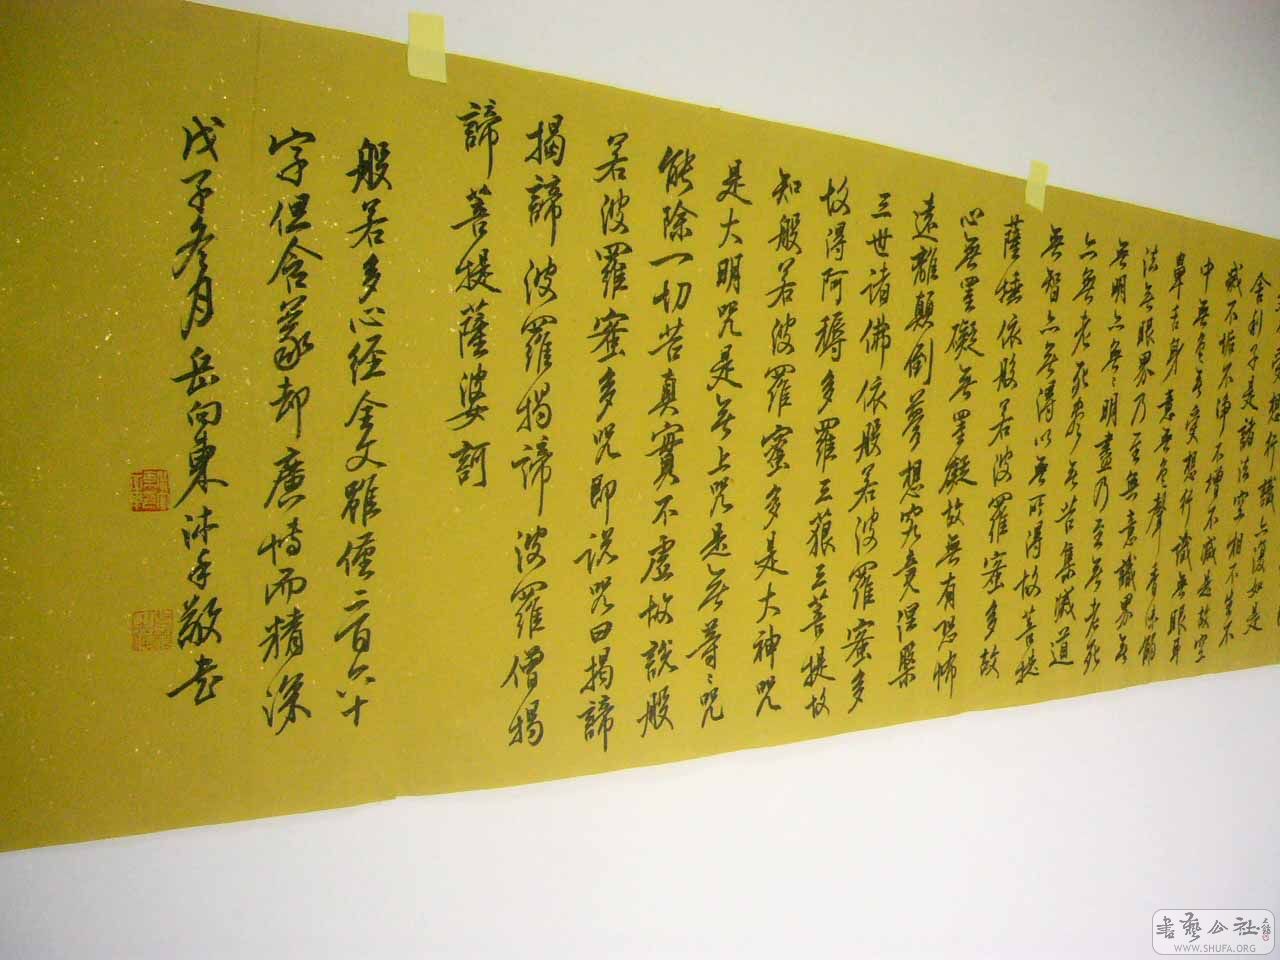 受想行識亦復如是
舍利子是諸法空相不生不
滅不垢不淨不增不減是故空
中無色無受想行識無眼耳
鼻舌身意無色聲香味觸
法無眼界乃至無意識界無
無明亦無無明盡乃至無老死
亦無老死盡無苦集滅道
無智亦無得以無所得故菩提
薩埵依般若波羅蜜多故
心無罣礙無罣礙故無有恐怖
遠離顛倒夢想究竟涅槃
三世諸佛依般若波羅蜜多
故得阿耨多羅三藐三菩提故
知般若波羅蜜多是大神咒
是大明咒是無上咒是無等〻咒
能除一切苦真實不虛故說般
若波羅蜜多咒即說咒曰揭諦
揭諦波羅揭諦波羅僧揭
諦菩提薩婆訶
般若多心經全文雖僅二百六十
字但含義却廣博而精深
戊子冬月岳向東沐手敬书
書藝公社
WWW.SHUFA.ORG